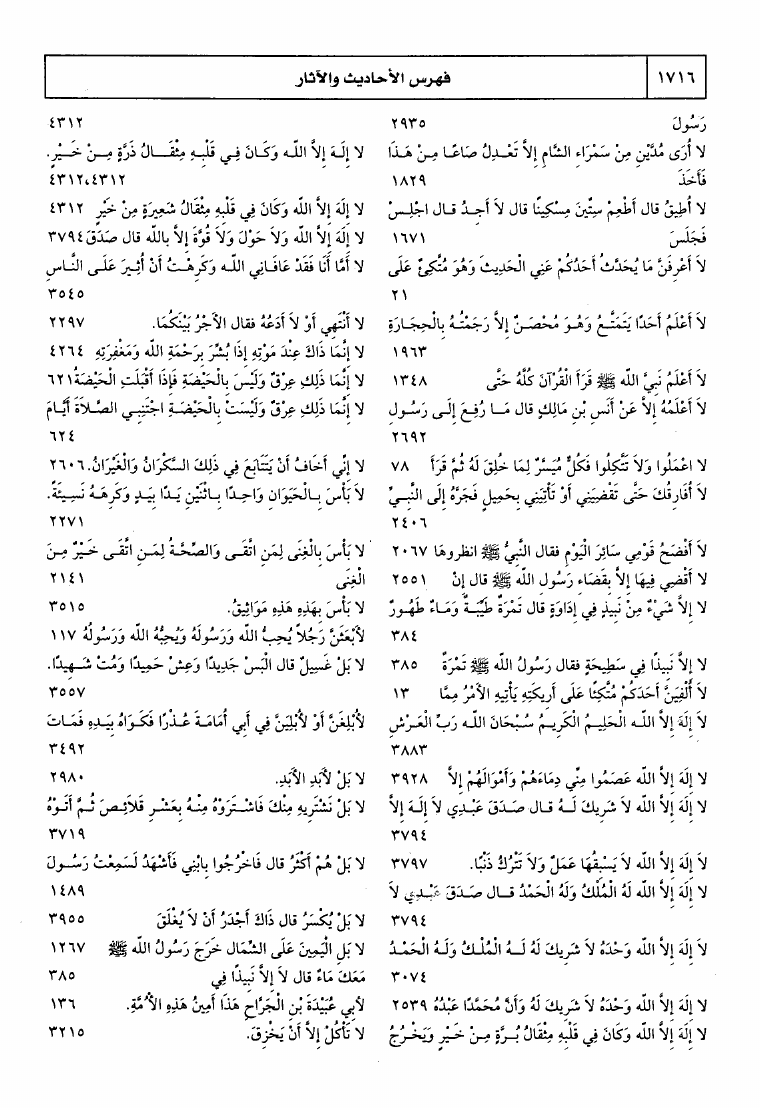 ١٧١٦
فهرس الأحاديث والآثار
رَسُولَ ٢٩٣٥
لا أُرَى مُدَّيْنِ مِنْ سَمْرَاءِ الشَّامِ إِلاَّ تَعْدِلُ صَاعًا مِنْ هَذَا
فَأَخَذَ ١٨٢٩
لا أُطِيقُ قال أَطْعِمْ سِتِّينَ مِسْكِينًا قال لاَ أَجِدُ قال اجْلِسْ
فَجَلَسَ ١٦٧١
لاَ أَعْرِفَنَّ مَا يُحَدَّثُ أَحَدُكُمْ عَنِي الْحَدِيثَ وَهُوَ مُتَّكِئٌ عَلَى
٢١
لاَ أَعْلَمُ أَحَدًا يَتَمَتَّعُ وَهُوَ مُحْصَنٌ إِلاَّ رَجَمْتُهُ بِالْحِجَارَةِ
١٩٦٣
لاَ أَعْلَمُ نَبِيَّ اللَّه ﷺ قَرَأَ الْقُرْآنَ كُلَّهُ حَتَّى ١٣٤٨
لاَ أَعْلَمُهُ إِلاَّ عَنْ أَنَسِ بْنِ مَالِكٍ قال مَا رُفِعَ إِلَى رَسُولِ
٢٦٩٢
لا اعْمَلُوا وَلاَ تَتَّكِلُوا فَكُلٌّ مُيَسَّرٌ لِمَا خُلِقَ لَهُ ثُمَّ قَرَأَ ٧٨
لاَ أُفَارِقُكَ حَتَّى تَقْضِيَنِي أَوْ تَأْتِيَنِي بِحَمِيلٍ فَجَرَّهُ إِلَى النَّبِيِّ
٢٤٠٦
لاَ أَفْضَحُ قَوْمِي سَائِرَ الْيَوْمِ فقال النَّبِيُّ ﷺ انظروها ٢٠٦٧
لاَ أَقْضِي فِيهَا إِلاَّ بِقَضَاءِ رَسُولِ اللَّه ﷺ قال إِنْ ٢٥٥١
لا إِلاَّ شَيْءٌ مِنْ نَبِيذٍ فِي إِدَاوَةٍ قال تَمْرَةٌ طَيِّبَةٌ وَمَاءٌ طَهُورٌ
٣٨٤
لا إِلاَّ نَبِيذًا فِي سَطِيحَةٍ فقال رَسُولُ اللَّه ﷺ تَمْرَةٌ ٣٨٥
لاَ أُلْفِيَنَّ أَحَدَكُمْ مُتَّكِئًا عَلَى أَرِيكَتِهِ يَأْتِيهِ الأَمْرُ مِمَّا ١٣
لاَ إِلَهَ إِلاَّ اللَّه الْحَلِيمُ الْكَرِيمُ سُبْحَانَ اللَّه رَبِّ الْعَرْشِ
٣٨٨٣
لا إِلَهَ إِلاَّ اللَّه عَصَمُوا مِنِّي دِمَاءَهُمْ وَأَمْوَالَهُمْ إِلاَّ ٣٩٢٨
لا إِلَهَ إِلاَّ اللَّه لاَ شَرِيكَ لَهُ قال صَدَقَ عَبْدِي لاَ إِلَهَ إِلاَّ
٣٧٩٤
لاَ إِلَهَ إِلاَّ اللَّه لاَ يَسْبِقُهَا عَمَلٌ وَلاَ تَتْرُكُ ذَنْبًا. ٣٧٩٧
لا إِلَهَ إِلاَّ اللَّه لَهُ الْمُلْكُ وَلَهُ الْحَمْدُ قال صَدَقَ عَبْدِي لاَ
٣٧٩٤
لاَ إِلَهَ إِلاَّ اللَّه وَحْدَهُ لاَ شَرِيكَ لَهُ لَهُ الْمُلْكُ وَلَهُ الْحَمْدُ
٣٠٧٤
لا إِلَهَ إِلاَّ اللَّه وَحْدَهُ لاَ شَرِيكَ لَهُ وَأَنَّ مُحَمَّدًا عَبْدُهُ ٢٥٣٩
لا إِلَهَ إِلاَّ اللَّه وَكَانَ فِي قَلْبِهِ مِثْقَالُ بُرَّةٍ مِنْ خَيْرٍ وَيَخْرُجُ
٤٣١٢
لا إِلَهَ إِلاَّ اللَّه وَكَانَ فِي قَلْبِهِ مِثْقَالُ ذَرَّةٍ مِنْ خَيْرٍ.
٤٣١٢،٤٣١٢
لا إِلَهَ إِلاَّ اللَّه وَكَانَ فِي قَلْبِهِ مِثْقَالُ شَعِيرَةٍ مِنْ خَيْرٍ ٤٣١٢
لا إِلَهَ إِلاَّ اللَّه وَلاَ حَوْلَ وَلاَ قُوَّةَ إِلاَّ باللَّه قال صَدَقَ ٣٧٩٤
لا أَمَّا أَنَا فَقَدْ عَافَانِي اللَّه وَكَرِهْتُ أَنْ أُثِيرَ عَلَى النَّاسِ
٣٥٤٥
لا أَنْتَهِي أَوْ لاَ أَدَعُهُ فقال الأَجْرُ بَيْنَكُمَا. ٢٢٩٧
لا إِنَّمَا ذَاكَ عِنْدَ مَوْتِهِ إِذَا بُشِّرَ بِرَحْمَةِ اللَّه وَمَغْفِرَتِهِ ٤٢٦٤
لا إِنَّمَا ذَلِكِ عِرْقٌ وَلَيْسَ بِالْحَيْضَةِ فَإِذَا أَقْبَلَتِ الْحَيْضَةُ ٦٢١
لا إِنَّمَا ذَلِكِ عِرْقٌ وَلَيْسَتْ بِالْحَيْضَةِ اجْتَنِبِي الصَّلاَةَ أَيَّامَ
٦٢٤
لا إِنِّي أَخَافُ أَنْ يَتَتَابَعَ فِي ذَلِكَ السَّكْرَانُ وَالْغَيْرَانُ. ٢٦٠٦
لاَ بَأْسَ بِالْحَيَوَانِ وَاحِدًا بِاثْنَيْنِ يَدًا بِيَدٍ وَكَرِهَهُ نَسِيئَةً.
٢٢٧١
لا بَأْسَ بِالْغِنَى لِمَنِ اتَّقَى وَالصِّحَّةُ لِمَنِ اتَّقَى خَيْرٌ مِنَ
الْغِنَى ٢١٤١
لا بَأْسَ بِهَذِهِ هَذِهِ مَوَاثِيقُ. ٣٥١٥
لأَبْعَثَنَّ رَجُلاً يُحِبُّ اللَّه وَرَسُولَهُ وَيُحِبُّهُ اللَّه وَرَسُولُهُ ١١٧
لا بَلْ غَسِيلٌ قال الْبَسْ جَدِيدًا وَعِشْ حَمِيدًا وَمُتْ شَهِيدًا.
٣٥٥٧
لأُبْلِغَنَّ أَوْ لأُبْلِيَنَّ فِي أَبِي أُمَامَةَ عُذْرًا فَكَوَاهُ بِيَدِهِ فَمَاتَ
٣٤٩٢
لا بَلْ لأَبَدِ الأَبَدِ. ٢٩٨٠
لا بَلْ نَشْتَرِيهِ مِنْكَ فَاشْتَرَوْهُ مِنْهُ بِعَشْرِ قَلاَئِصَ ثُمَّ أَتَوْهُ
٣٧١٩
لا بَلْ هُمْ أَكْثَرُ قال فَاخْرُجُوا بِابْنِي فَأَشْهَدُ لَسَمِعْتُ رَسُولَ
١٤٨٩
لا بَلْ يُكْسَرُ قال ذَاكَ أَجْدَرُ أَنْ لاَ يُغْلَقَ ٣٩٥٥
لا بَلِ الْيَمِينَ عَلَى الشِّمَالِ خَرَجَ رَسُولُ اللَّه ﷺ ١٢٦٧
مَعَكَ مَاءٌ قال لاَ إِلاَّ نَبِيذًا فِي ٣٨٥
لأبي عُبَيْدَةَ بْنِ الْجَرَّاحِ هَذَا أَمِينُ هَذِهِ الأُمَّةِ. ١٣٦
لا تَأْكُلْ إِلاَّ أَنْ يَخْزِقَ. ٣٢١٥